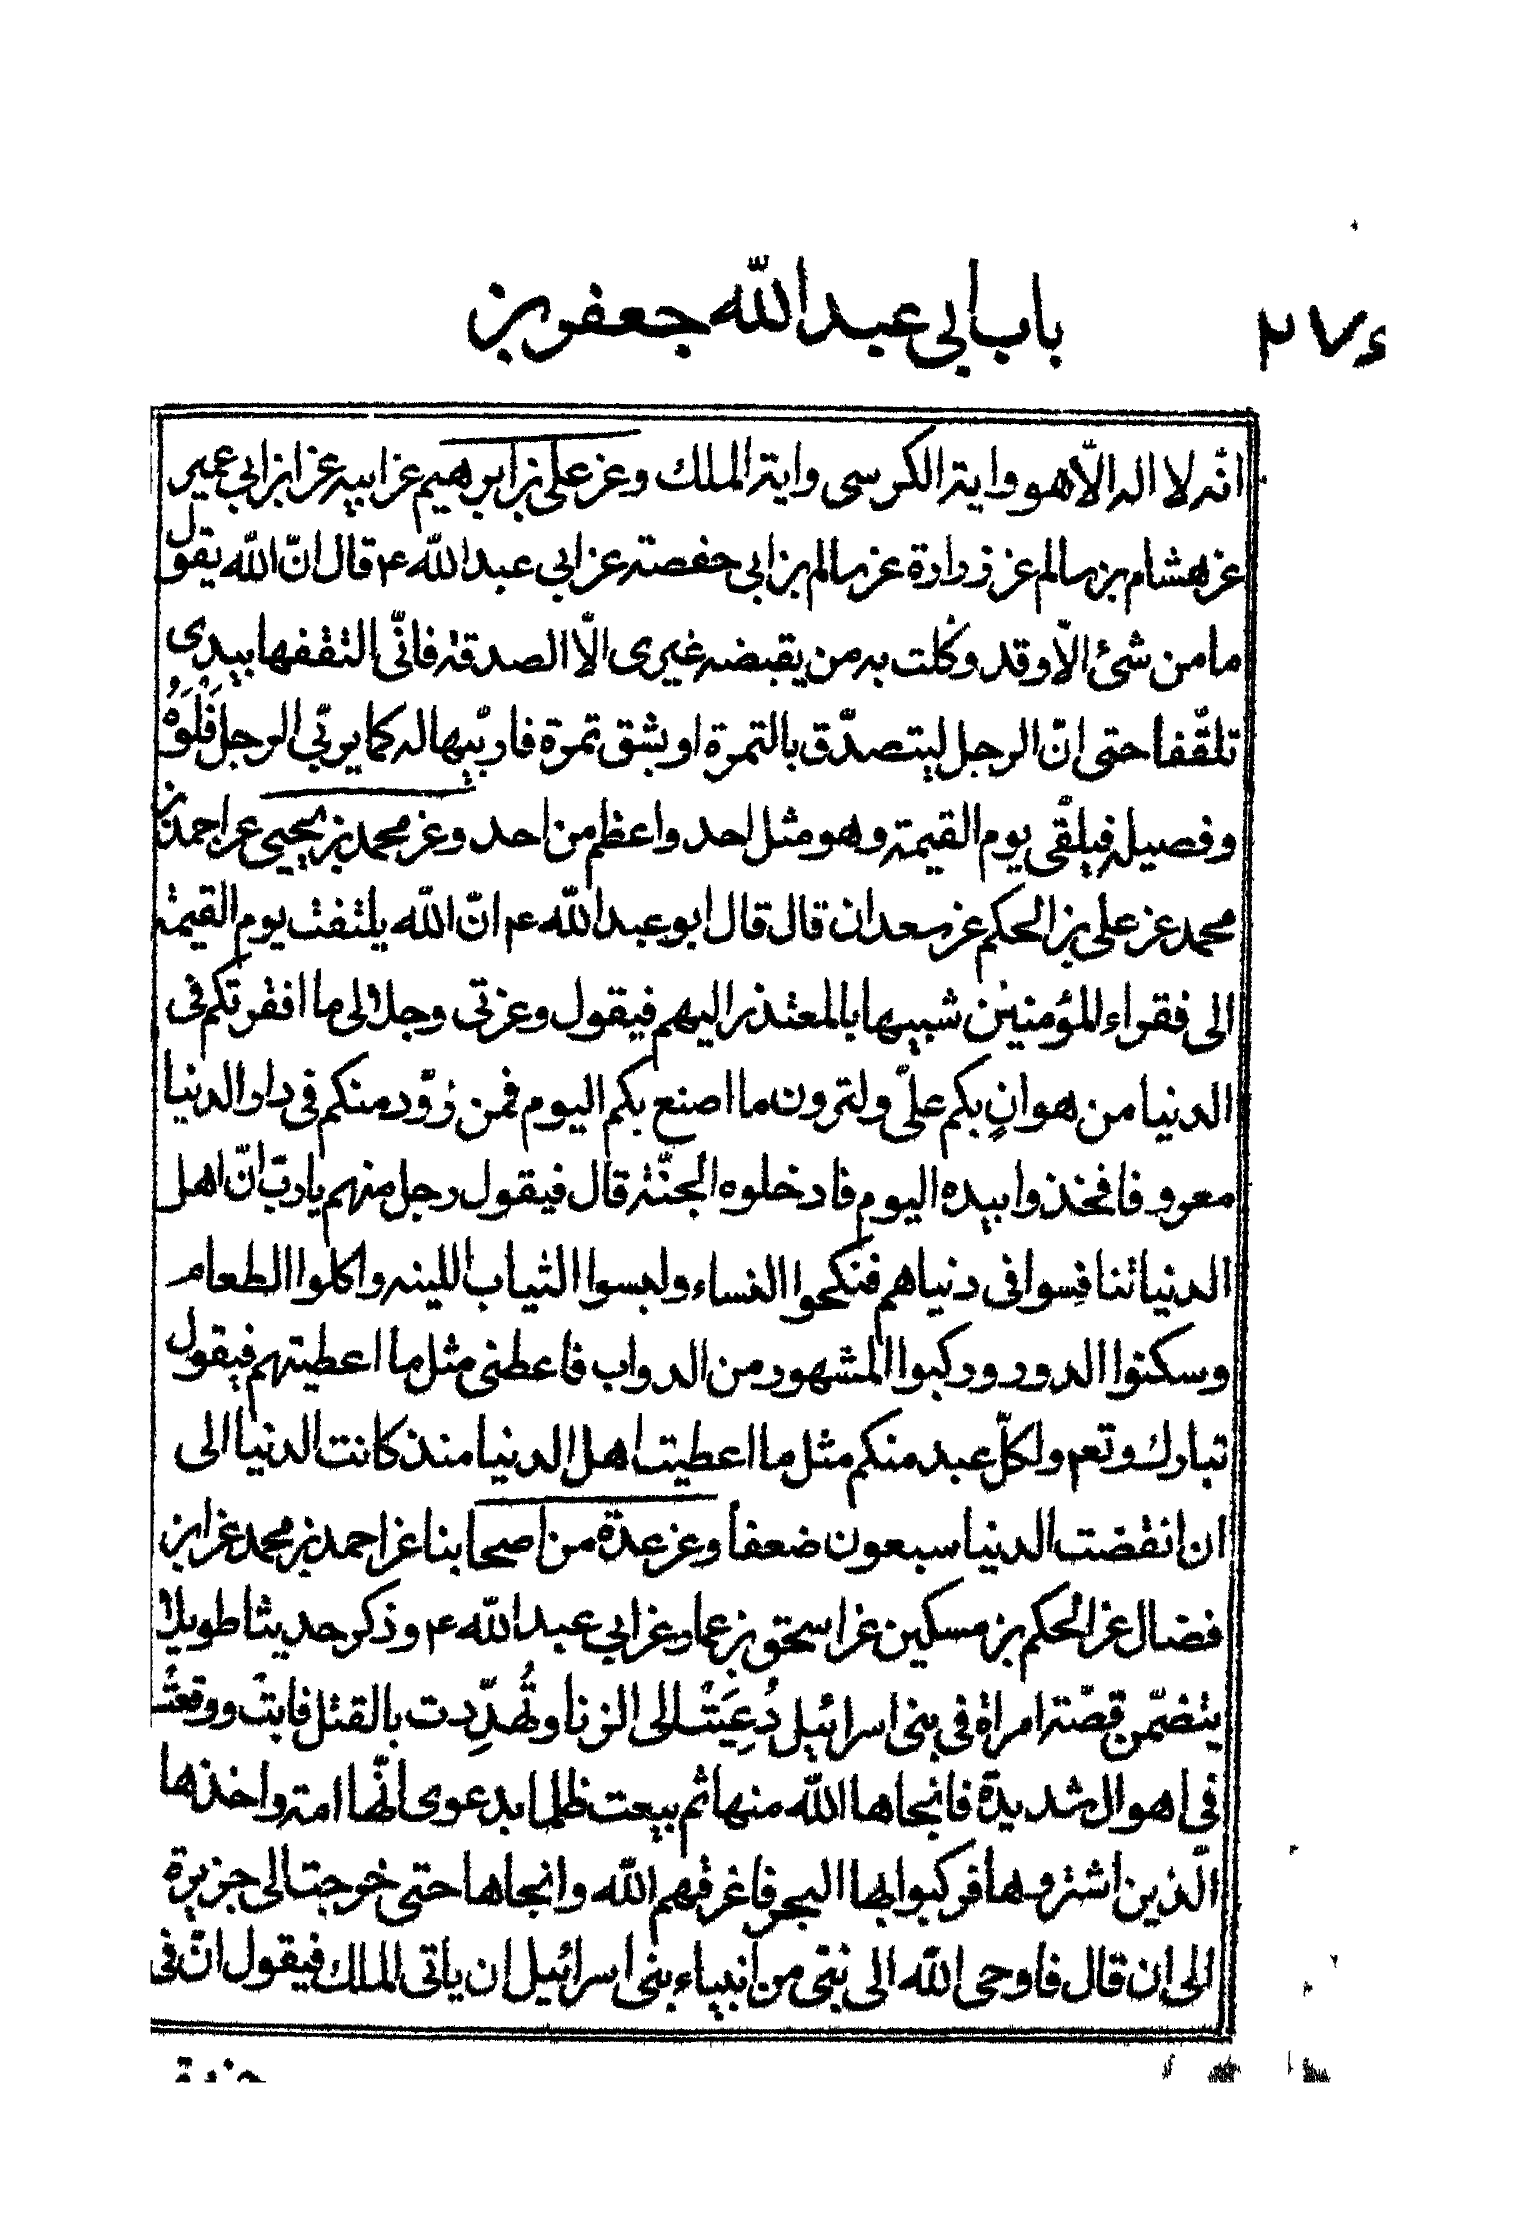 ٢٧٤ باب ابي عبد الله جعفر بن
انّه لا اله الّا هو واية الكرسى واية الملك وعن على بن ابرهيم عن ابيه عن ابن ابي عمير
عن هشام بن سالم عن زرارة عن سالم بن ابي حفصة عن ابي عبد الله ع قال انّ الله يقول
ما من شئ الّا وقد وكلت به من يقبضه غيرى الّا الصدقة فانّى اتلقفها بيدى
تلقّفا حتى انّ الرجل ليتصدّق بالتمرة او بشق تمرة فاربّيها له كما يربّى الرجل فَلُوَّهُ
وفصيله فيلقى يوم القيمة وهو مثل احد واعظم من احد وعن محمد بن يحيى عن احمد بن
محمد عن على بن الحكم عن سعدان قال قال ابو عبد الله ع انّ الله يلتفت يوم القيمة
الى فقراء المؤمنين شبيها بالمعتذر اليهم فيقول وعزتى وجلالى ما افقرتكم فى
الدنيا من هوانٍ بكم علىّ ولترون ما اصنع بكم اليوم فمن زوّد منكم فى دار الدنيا
معروفا فخذوا بيده اليوم فادخلوه الجنّة قال فيقول رجل منهم يا ربّ انّ اهل
الدنيا تنافسوا فى دنياهم فنكحوا النساء ولبسوا الثياب اللينه واكلوا الطعام
وسكنوا الدور وركبوا المشهور من الدواب فاعطنى مثل ما اعطيتهم فيقول
تبارك وتعم ولكلّ عبد منكم مثل ما اعطيت اهل الدنيا منذ كانت الدنيا الى
ان انقضت الدنيا سبعون ضعفا وعن عدّة من اصحابنا عن احمد بن محمد عن ابن
فضال عن الحكم بن مسكين عن اسحق بن عمار عن ابي عبد الله ع وذكر حديثا طويلا
يتضمّن قصّة امراة فى بنى اسرائيل دُعِيَتْ الى الزنا وتُهدِّدت بالقتل فابت ووقعت
فى اهوال شديدة فانجاها الله منها ثم بيعت ظلما بدعوى انّها امة واخذها
الّذين اشتروها فركبوا بها البحر فاغرقهم الله وانجاها حتى خرجت الى جزيرة
الى ان قال فاوحى الله الى نبّى من انبياء بنى اسرائيل ان ياتى الملك فيقول انّ فى